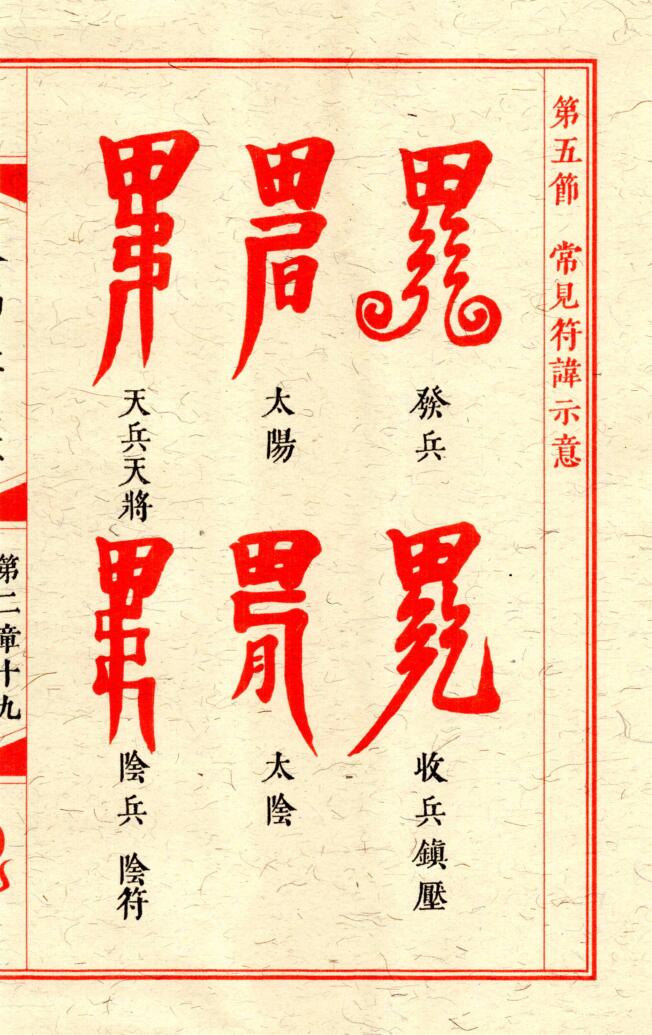 第五節 常見符諱示意
發兵
收兵鎮壓
太陽
太陰
天兵天將
陰兵 陰符
第二章十九